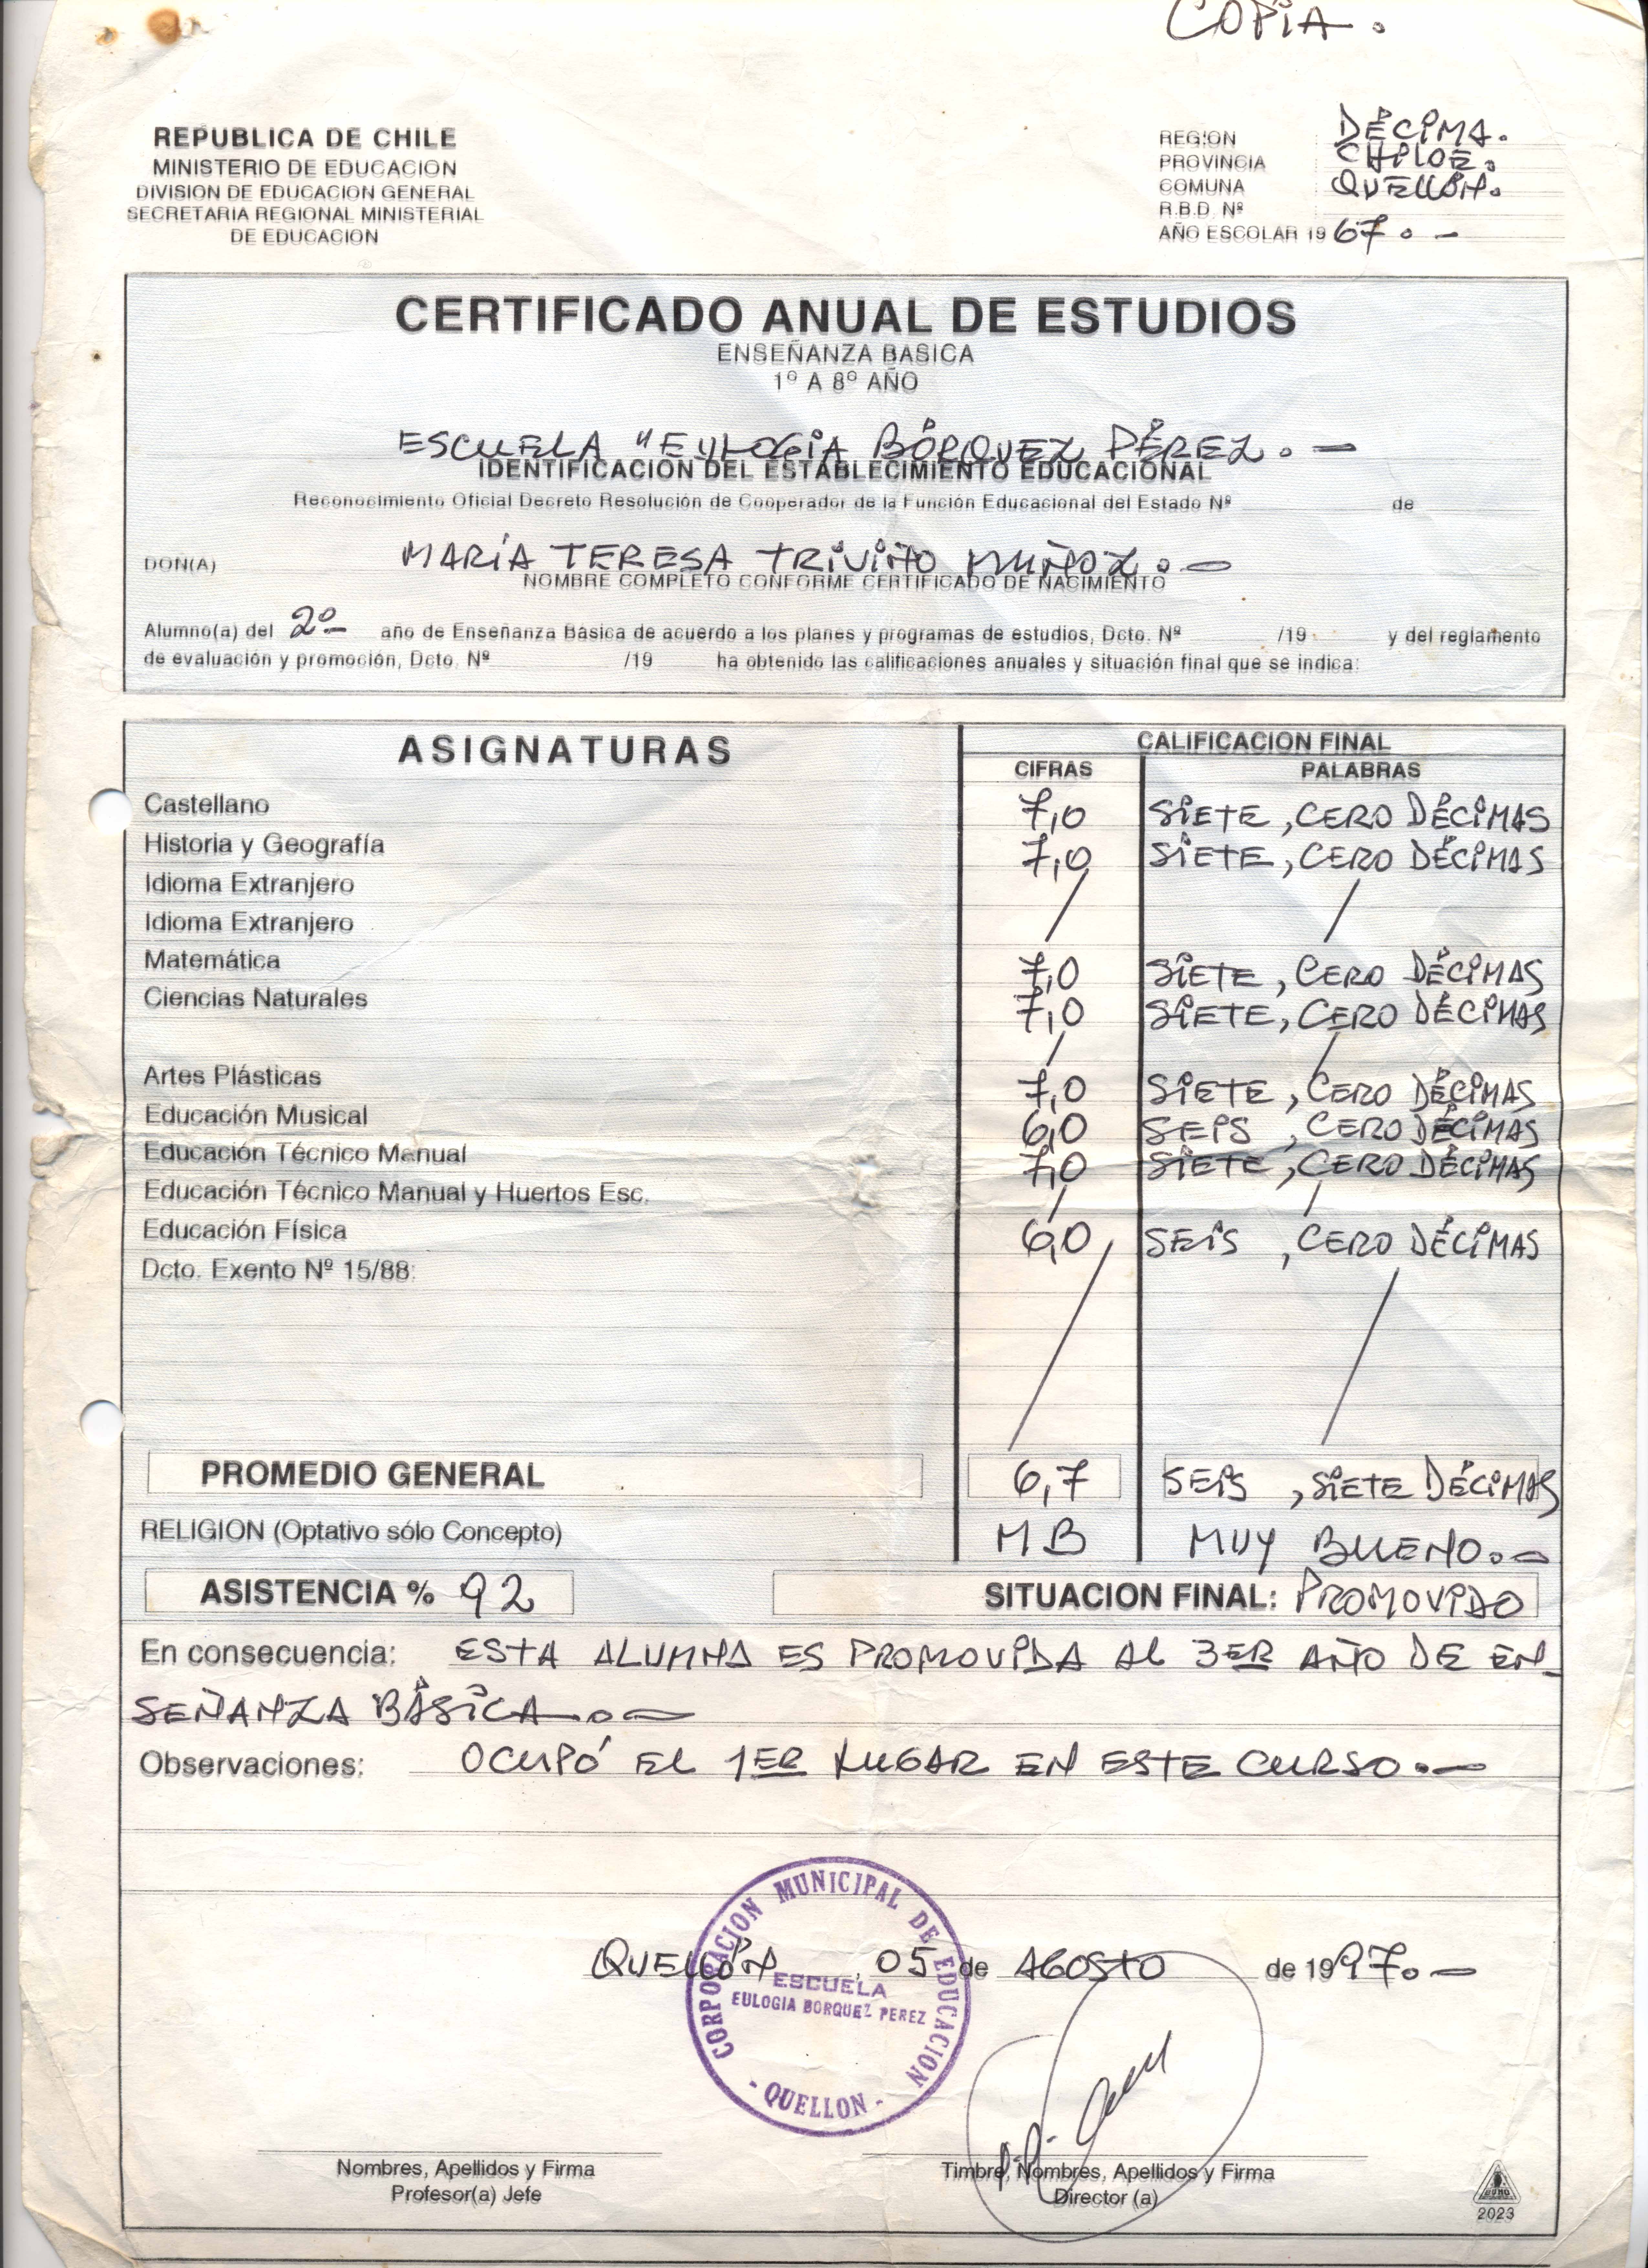 COPIA.
REPUBLICA DE CHILE
MINISTERIO DE EDUCACION
DIVISION DE EDUCACION GENERAL
SECRETARIA REGIONAL MINISTERIAL
DE EDUCACION
REGION DÉCIMA.
PROVINCIA CHILOÉ.
COMUNA QUELLÓN.
R.B.D. Nº
AÑO ESCOLAR 19 67.-
CERTIFICADO ANUAL DE ESTUDIOS
ENSEÑANZA BASICA
1º A 8º AÑO
ESCUELA "EULOGIA BÓRQUEZ PÉREZ.-
IDENTIFICACION DEL ESTABLECIMIENTO EDUCACIONAL
Reconocimiento Oficial Decreto Resolución de Cooperador de la Función Educacional del Estado Nº de
DON(A) MARÍA TERESA TRIVIÑO MUÑOZ.-
NOMBRE COMPLETO CONFORME CERTIFICADO DE NACIMIENTO
Alumno(a) del 2º año de Enseñanza Básica de acuerdo a los planes y programas de estudios, Dcto. Nº /19 y del reglamento
de evaluación y promoción, Dcto. Nº /19 ha obtenido las calificaciones anuales y situación final que se indica:
ASIGNATURAS CALIFICACION FINAL
CIFRAS PALABRAS
Castellano 7,0 SIETE, CERO DÉCIMAS
Historia y Geografía 7,0 SIETE, CERO DÉCIMAS
Idioma Extranjero
Idioma Extranjero
Matemática 7,0 SIETE, CERO DÉCIMAS
Ciencias Naturales 7,0 SIETE, CERO DÉCIMAS
Artes Plásticas 7,0 SIETE, CERO DÉCIMAS
Educación Musical 6,0 SEIS, CERO DÉCIMAS
Educación Técnico Manual 7,0 SIETE, CERO DÉCIMAS
Educación Técnico Manual y Huertos Esc.
Educación Física 6,0 SEIS, CERO DÉCIMAS
Dcto. Exento Nº 15/88:
PROMEDIO GENERAL 6,7 SEIS, SIETE DÉCIMAS
RELIGION (Optativo sólo Concepto) MB MUY BUENO.-
ASISTENCIA % 92 SITUACION FINAL: PROMOVIDO
En consecuencia: ESTA ALUMNA ES PROMOVIDA AL 3ER AÑO DE EN-
SEÑANZA BÁSICA.-
Observaciones: OCUPÓ EL 1ER LUGAR EN ESTE CURSO.-
QUELLÓN, 05 de AGOSTO de 1997.-
CORPORACION MUNICIPAL DE EDUCACION
ESCUELA
EULOGIA BORQUEZ PEREZ
- QUELLON -
Nombres, Apellidos y Firma
Profesor(a) Jefe
Timbre, Nombres, Apellidos y Firma
Director (a)
2023